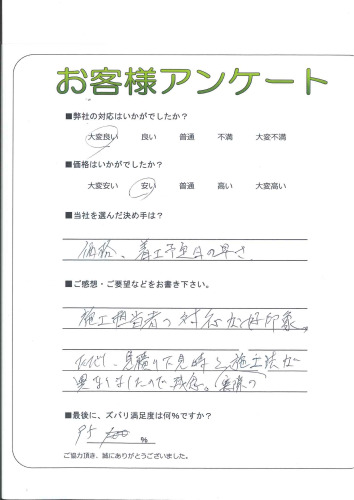 お客様アンケート
■弊社の対応はいかがでしたか?
大変良い 良い 普通 不満 大変不満
■価格はいかがでしたか?
大変安い 安い 普通 高い 大変高い
■当社を選んだ決め手は?
価格、着工予定日の早さ
■ご感想・ご要望などをお書き下さい。
施工担当者の対応が好印象。
ただし、見積り下見時と施工法が
異なりましたので残念。(実際の
■最後に、ズバリ満足度は何%ですか?
95 %
ご協力頂き、誠にありがとうございました。